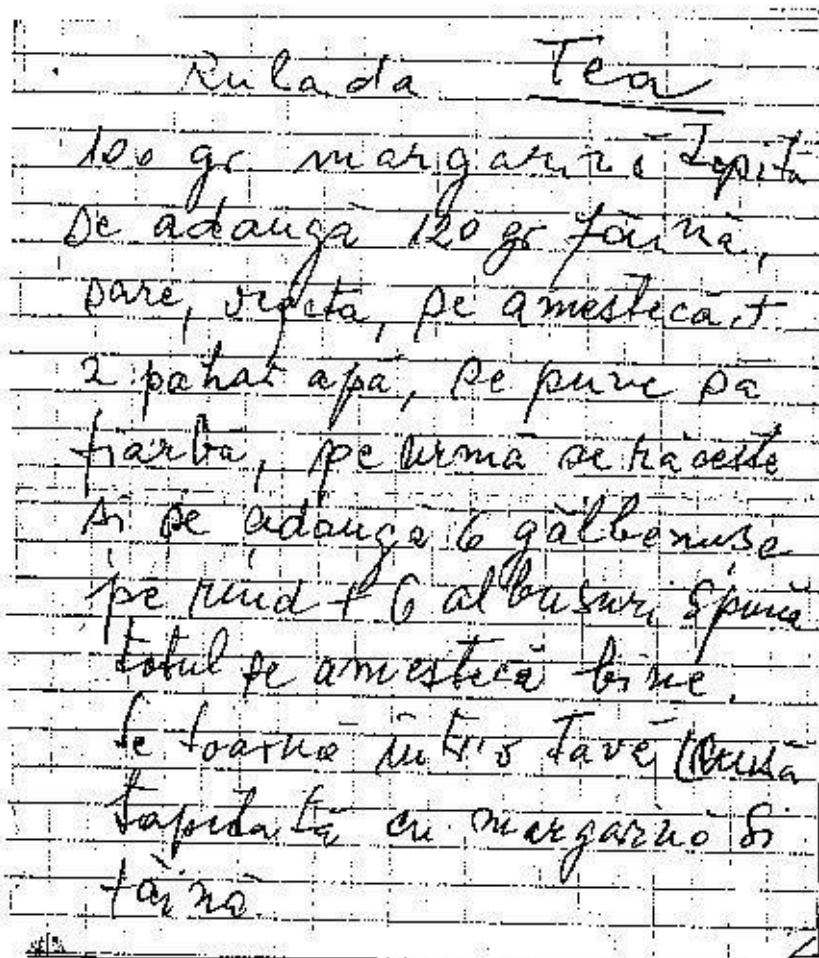 Rulada Tea
100 gr margarină topită
se adaugă 120 gr făină,
sare, vegeta, se amestecă, +
2 pahar apă, se pune să
fiarbă, pe urmă se răcește
si se adauga 6 gălbenușe
pe rînd + 6 albusuri spumă
totul se amestecă bine.
Se toarnă într'o Tavă
tapetată cu margarină si
făină